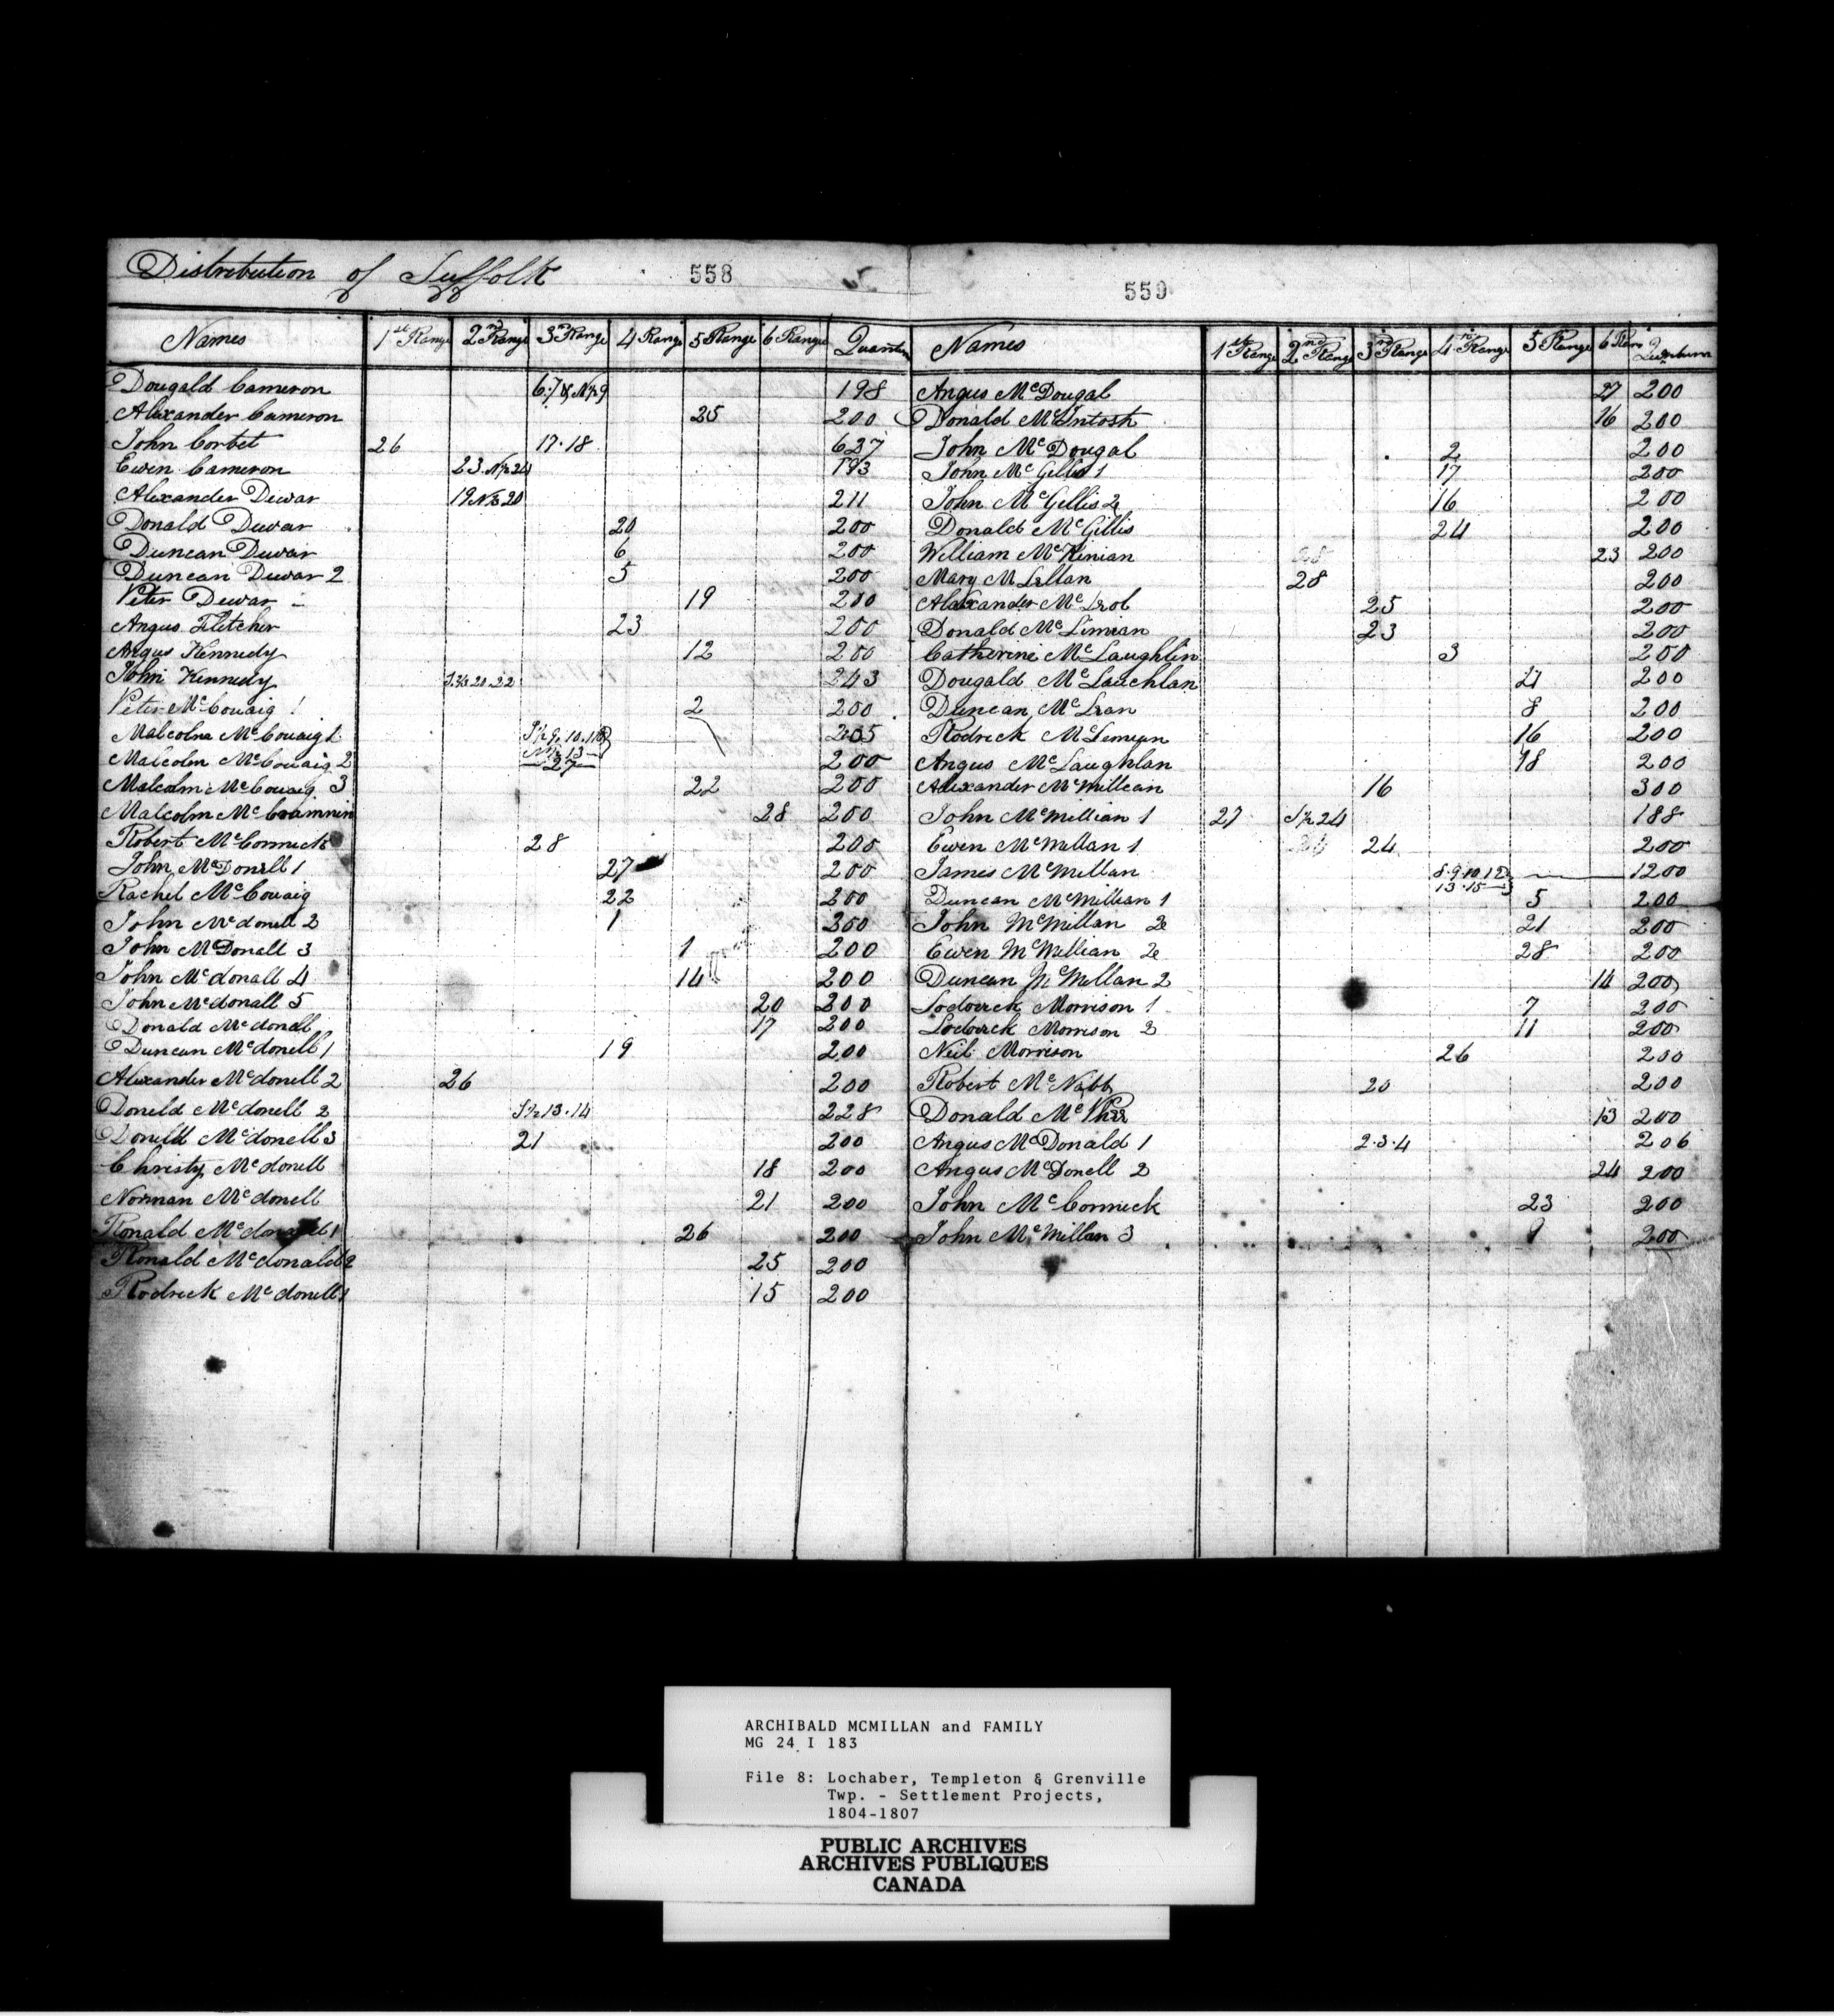 Distribution of Suffolk 558
559
Names 1st Range 2nd Range 3rd Range 4 Range 5 Range 6 Range
Dougald Cameron 198
Alexander Cameron 25 200
John Corbet 26 17.18 627
Ewen Cameron 193
Alexander Dewar 211
Donald Dewar 20 200
Duncan Dewar 6 200
Duncan Dewar 2 5 200
Peter Dewar 19 200
Angus Fletcher 23 200
Angus Kennedy 12 200
John Kennedy 243
Peter McCouaig 2 200
Malcolm McCouaig 1 205
Malcolm McCouaig 2 27 200
Malcolm McCouaig 3 22 200
Malcolm 28 200
Robert McCormick 28 200
John McDonell 1 27 200
Rachel McCouaig 22 200
John Mcdonell 2 1 200
John McDonall 3 1 200
John Mcdonall 4 14 200
John Mcdonall 5 20 200
Donald Mcdonell 17 200
Duncan Mcdonell 1 19 200
Alexander Mcdonell 2 26 200
Doneld Mcdonell 2 S½ 13.14 228
Doneld Mcdonell 3 21 200
Christy Mcdonell 18 200
Norman Mcdonell 21 200
Ronald 1 26 200
Ronald Mcdonald 2 25 200
Rodrick Mcdonell 1 15 200
Names 1st Range 2nd Range 3rd Range 4 Range 5 Range
Angus McDougal 27 200
Donald McIntosh 16 200
John McDougal 2 200
John McGillis 1 17 200
John McGillis 2 16 200
Donald McGillis 24 200
William McKinian 23 200
Mary 28 200
Alexander 25 200
Donald 23 200
Catherine McLaughlin 3 200
Dougald McLauchlan 200
Duncan McLean 8 200
Rodrick 16 200
Angus McLaughlan 18 200
Alexander McMillean 16 300
John McMillian 1 27 S½ 24 188
Ewen McMillan 1 24 200
James McMillan 8.9.10.12 1200
13.15
Duncan McMillean 1 5 200
John McMillan 2 21 200
Ewen McMillian 2 28 200
Duncan McMillan 2 14 200
Lodovick Morrison 1 7 200
Lodovick Morrison 2 11 200
Neil Morrison 26 200
Robert McNabb 20 200
Donald 13 200
Angus McDonald 1 2.3.4 206
Angus McDonell 2 24 200
John McCormick 23 200
John McMillan 3 9 200
ARCHIBALD MCMILLAN and FAMILY
MG 24 I 183
File 8: Lochaber, Templeton & Grenville
Twp. - Settlement Projects,
1804-1807
PUBLIC ARCHIVES
ARCHIVES PUBLIQUES
CANADA